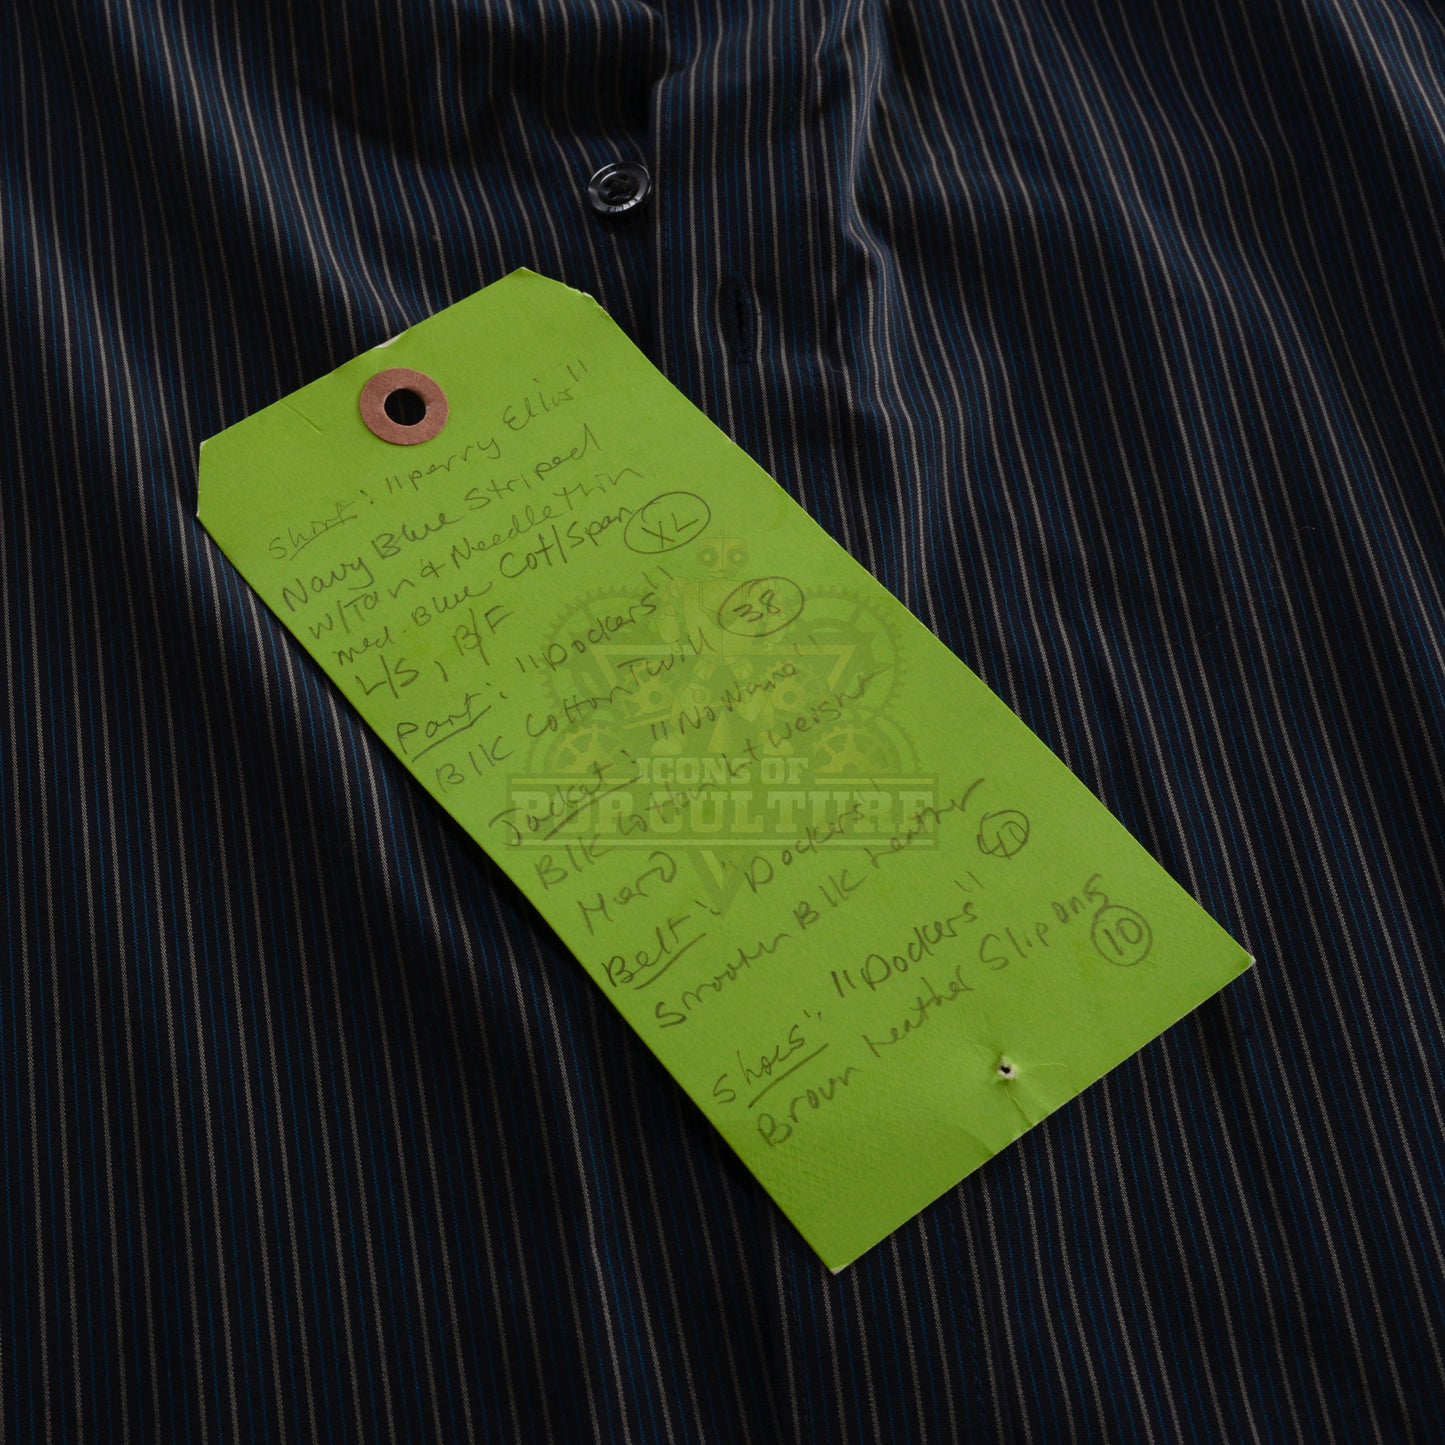 Shirt: "perry Ellis"
Navy Blue Striped
w/Tan & Needlethin
med. Blue Cot/Span XL
L/S, B/F
Pant: "Dockers"
Blk Cotton Twill 38
Jacket: "No Name"
Blk Cotton Lt weight
Belt: "Dockers"
Smooth Blk Leather
Shoes: "Dockers"
Brown Leather Slip ons 10
ICONS OF
POP CULTURE